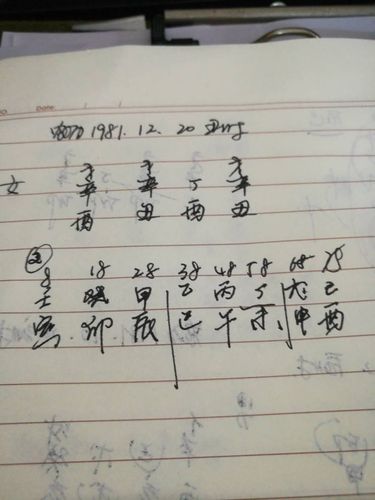 DATE
1981. 12. 20 丑时
才 才 才
女 辛 辛 丁 辛
酉 丑 酉 丑
8 18 28 38 48 58 68 78
壬 癸 甲 乙 丙 丁 戊 己
寅 卯 辰 巳 午 未 申 酉